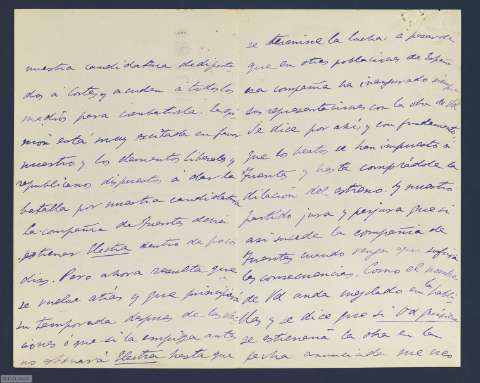 nuestra candidatura de diputa
dos a Cortes y acuden a todos los
medios para combatirla. La opi
nión está muy excitada en favor
nuestro y los elementos liberales y
republicanos dispuestos a dar la
batalla por nuestra candidatura
La compañía de Fuentes debía
estrenar Electra dentro de pocos
días. Pero ahora resulta que
se vuelve atrás y que principia
su temporada después de las elec
ciones o que si la empieza antes
no estrenará Electra hasta que
se termine la lucha. a pesar de
que en otras poblaciones de España
esa compañía ha inaugurado
sus representaciones con la obra de Vd
Se dice por ahí, y con fundamento
que los beatos se han impuesto a
Fuentes y hasta comprádole la
dilación del estreno. Y nuestro
partido jura y perjura que si
así sucede la compañía de
Fuentes cuando venga que sufrirá
las consecuencias. Como el nombre
de Vd anda mezclado en la
y se dice que si Vd quisiera
se estrenaría la obra en la
fecha anunciada me veo